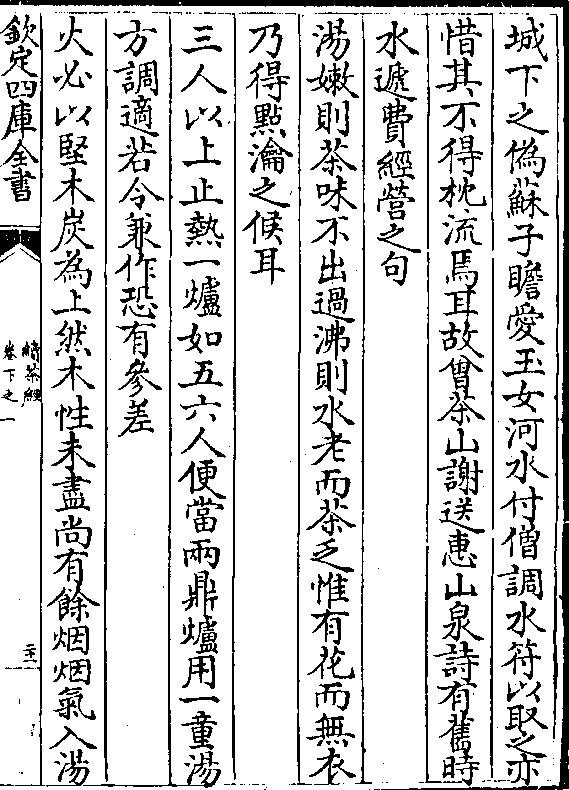 城下之偽蘇子瞻愛玉女河水付僧調水符以取之亦
惜其不得枕流焉耳故曾茶山謝送惠山泉詩有舊時
水遞費經營之句
湯嫩則茶味不出過沸則水老而茶乏惟有花而無衣
乃得點瀹之候耳
三人以上止熱一爐如五六人便當兩鼎爐用一童湯
方調適若令兼作恐有參差
火必以堅木炭為上然木性未盡尚有餘烟烟氣入湯
欽定四庫全書
續茶經
卷下之一